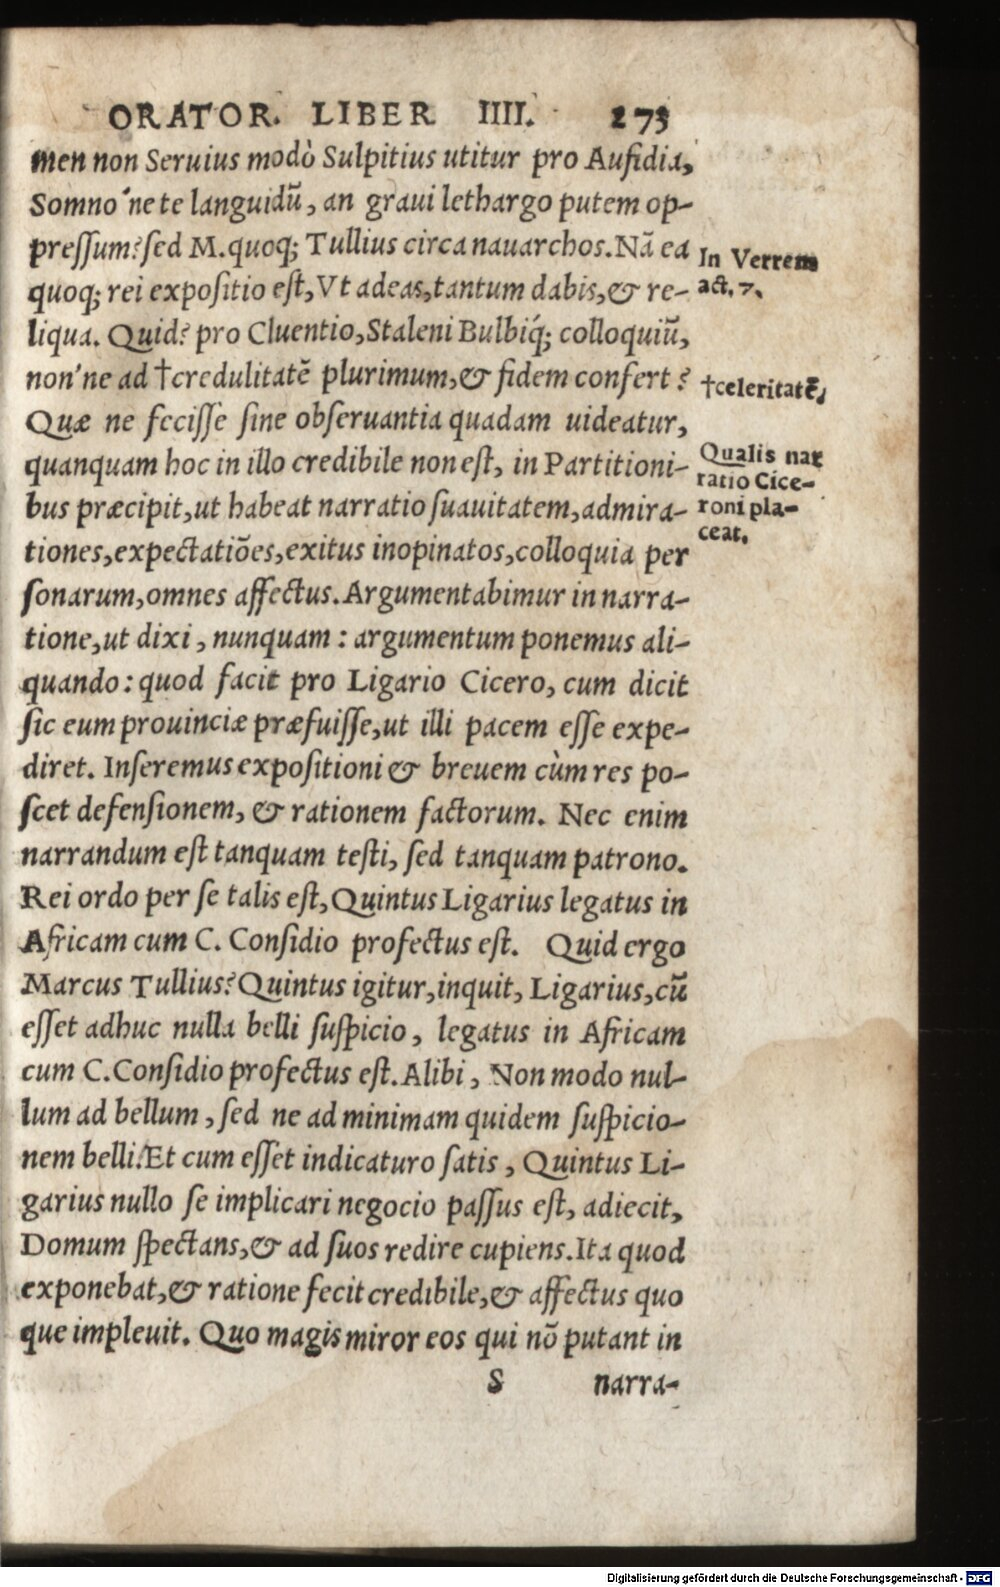 ORATOR. LIBER IIII. 273
men non Seruius modò Sulpitius utitur pro Aufidia,
Somno'ne te languidũ, an graui lethargo putem op-
pressum? sed M. quoq; Tullius circa nauarchos. Nã ea
quoq; rei expositio est, Vt adeas, tantum dabis, & re-
liqua. Quid? pro Cluentio, Staleni Bulbiq́; colloquiũ,
non'ne ad †credulitatẽ plurimum, & fidem confert?
Quæ ne fecisse sine obseruantia quadam uideatur,
quanquam hoc in illo credibile non est, in Partitioni-
bus præcipit, ut habeat narratio suauitatem, admira-
tiones, expectatiões, exitus inopinatos, colloquia per
sonarum, omnes affectus. Argumentabimur in narra-
tione, ut dixi, nunquam: argumentum ponemus ali-
quando: quod facit pro Ligario Cicero, cum dicit
sic eum prouinciæ præfuisse, ut illi pacem esse expe-
diret. Inseremus expositioni & breuem cùm res po-
scet defensionem, & rationem factorum. Nec enim
narrandum est tanquam testi, sed tanquam patrono.
Rei ordo per se talis est, Quintus Ligarius legatus in
Africam cum C. Considio profectus est. Quid ergo
Marcus Tullius? Quintus igitur, inquit, Ligarius, cũ
esset adhuc nulla belli suspicio, legatus in Africam
cum C. Considio profectus est. Alibi, Non modo nul-
lum ad bellum, sed ne ad minimam quidem suspicio-
nem belli. Et cum esset indicaturo satis, Quintus Li-
garius nullo se implicari negocio passus est, adiecit,
Domum spectans, & ad suos redire cupiens. Ita quod
exponebat, & ratione fecit credibile, & affectus quo
que impleuit. Quo magis miror eos qui nõ putant in
S narra-
In Verrem
act. 7.
†celeritatẽ,
Qualis nar
ratio Cice-
roni pla-
ceat.
Digitalisierung gefördert durch die Deutsche Forschungsgemeinschaft - DFG